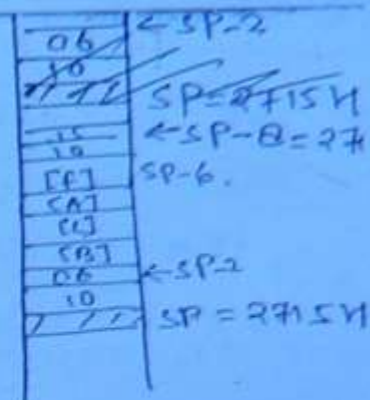 06 ←SP-2
10
SP=2715H
15 ←SP-8=27
10
[F] SP-6.
[A]
[C]
[B]
06 ←SP-2
10
SP = 2715H